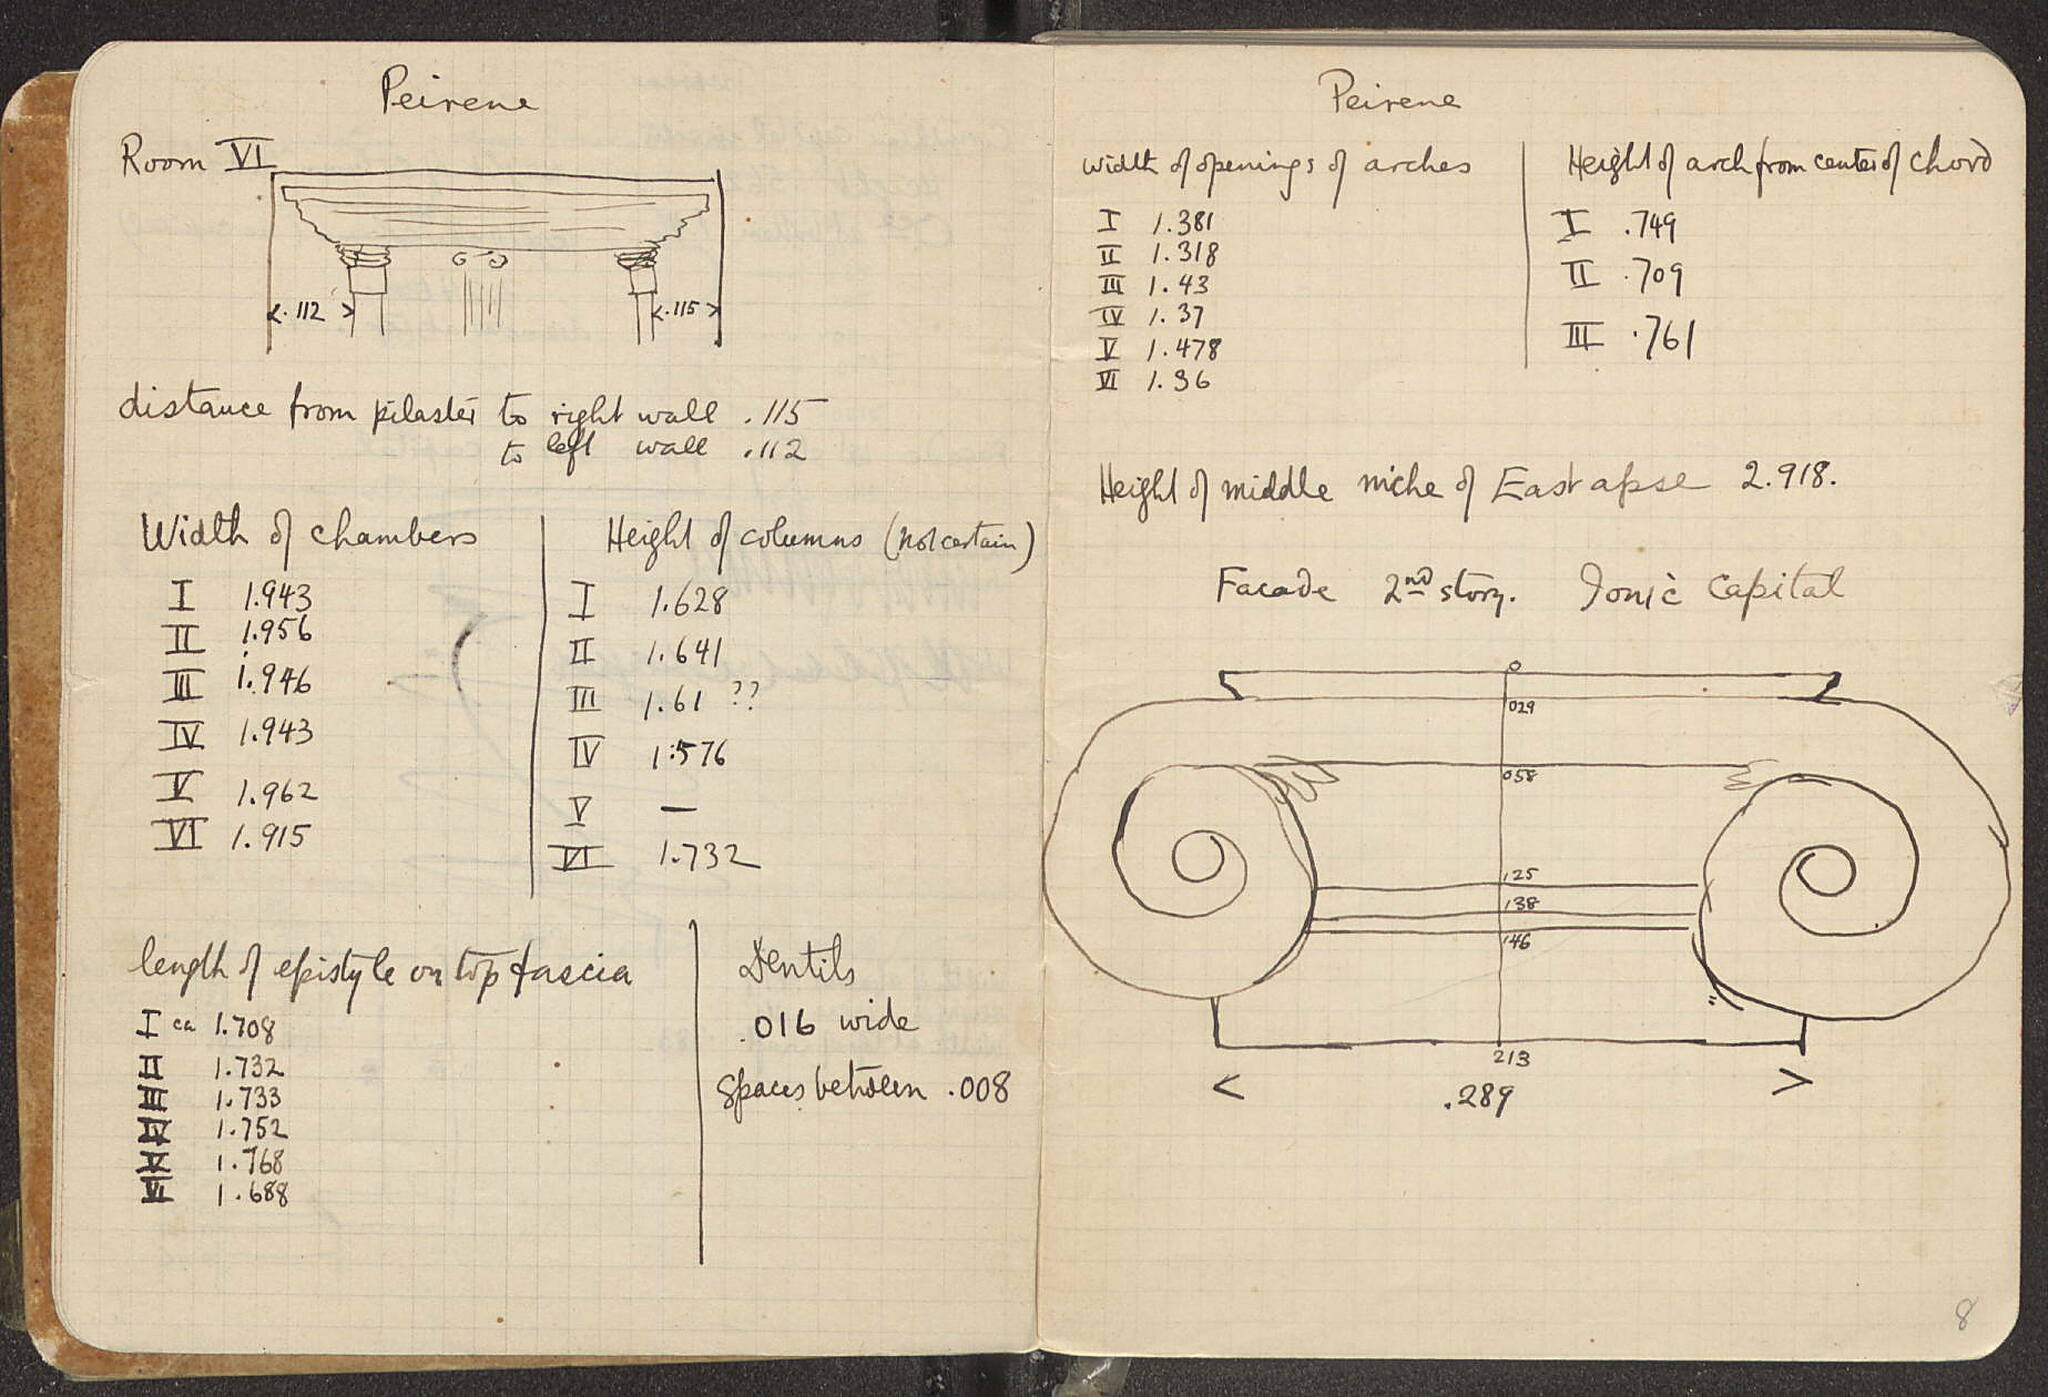 Peirene
Room VI
.112
.115
distance from pilaster to right wall .115
to left wall .112
Width of chambers
I 1.943
II 1.956
III 1.946
IV 1.943
V 1.962
VI 1.915
Height of columns (not certain)
I 1.628
II 1.641
III 1.61 ??
IV 1.576
V —
VI 1.732
length of epistyle on top fascia
I ca 1.708
II 1.732
III 1.733
IV 1.752
V 1.768
VI 1.688
Dentils
.016 wide
spaces between .008
Peirene
Width of openings of arches
I 1.381
II 1.318
III 1.43
IV 1.37
V 1.478
VI 1.36
Height of arch from center of chord
I .749
II .709
III .761
Height of middle niche of East apse 2.918.
Facade 2nd story. Ionic Capital
0
029
058
125
138
146
213
< .289 >
8